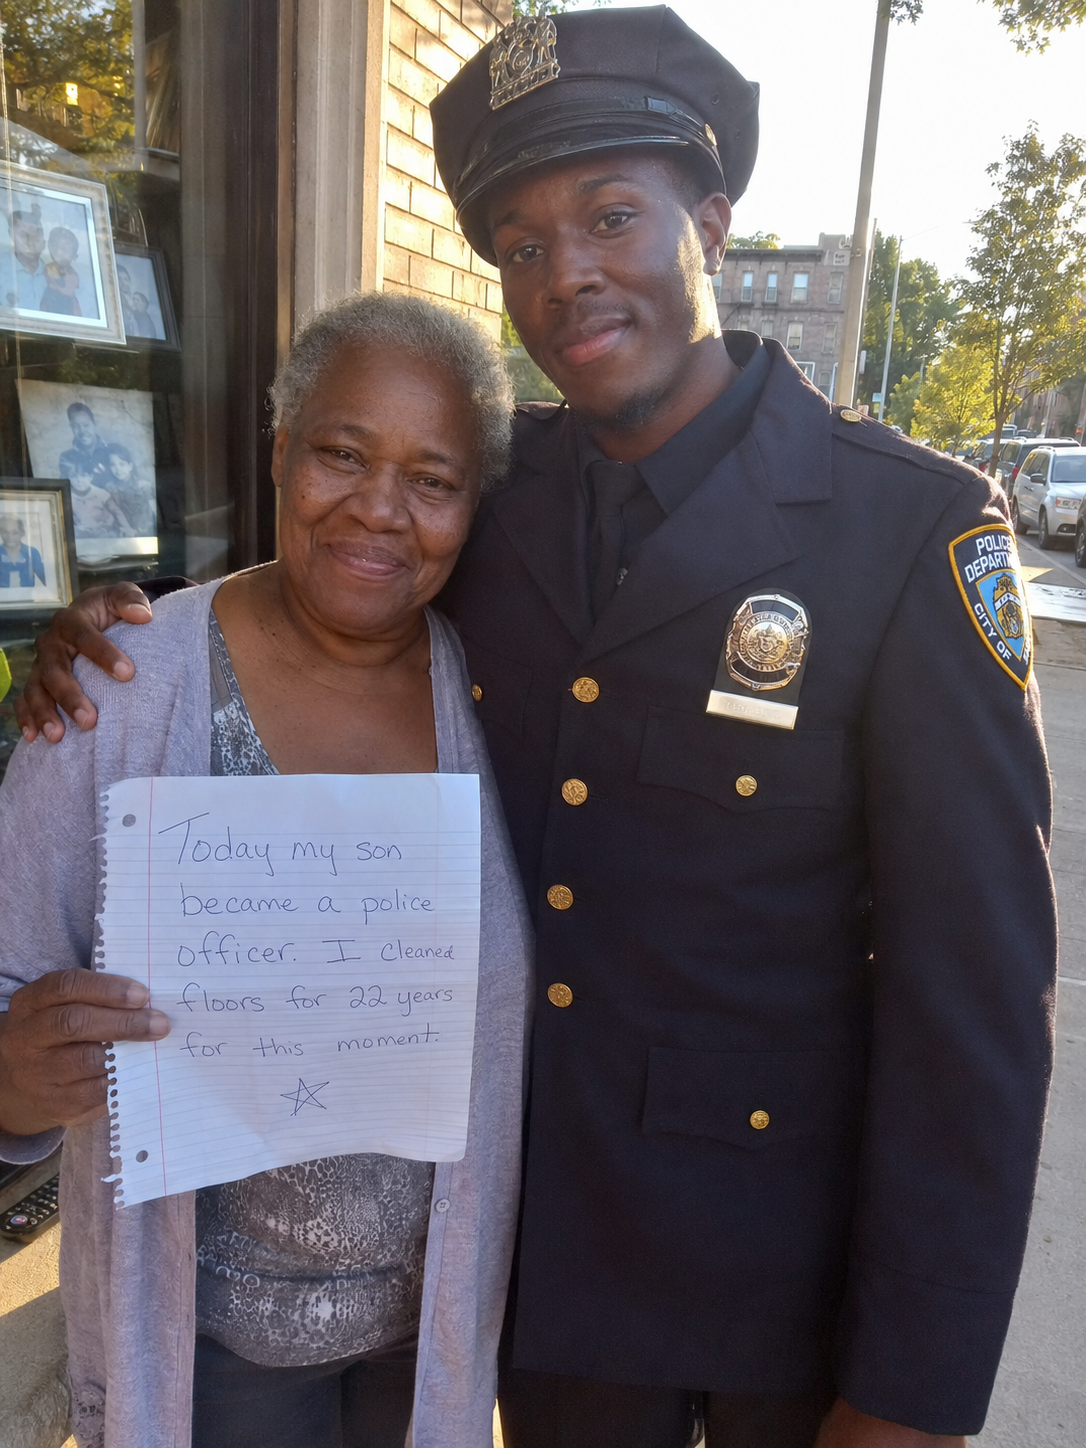 Today my son
became a police
officer. I cleaned
floors for 22 years
for this moment.
POLICE
CITY OF